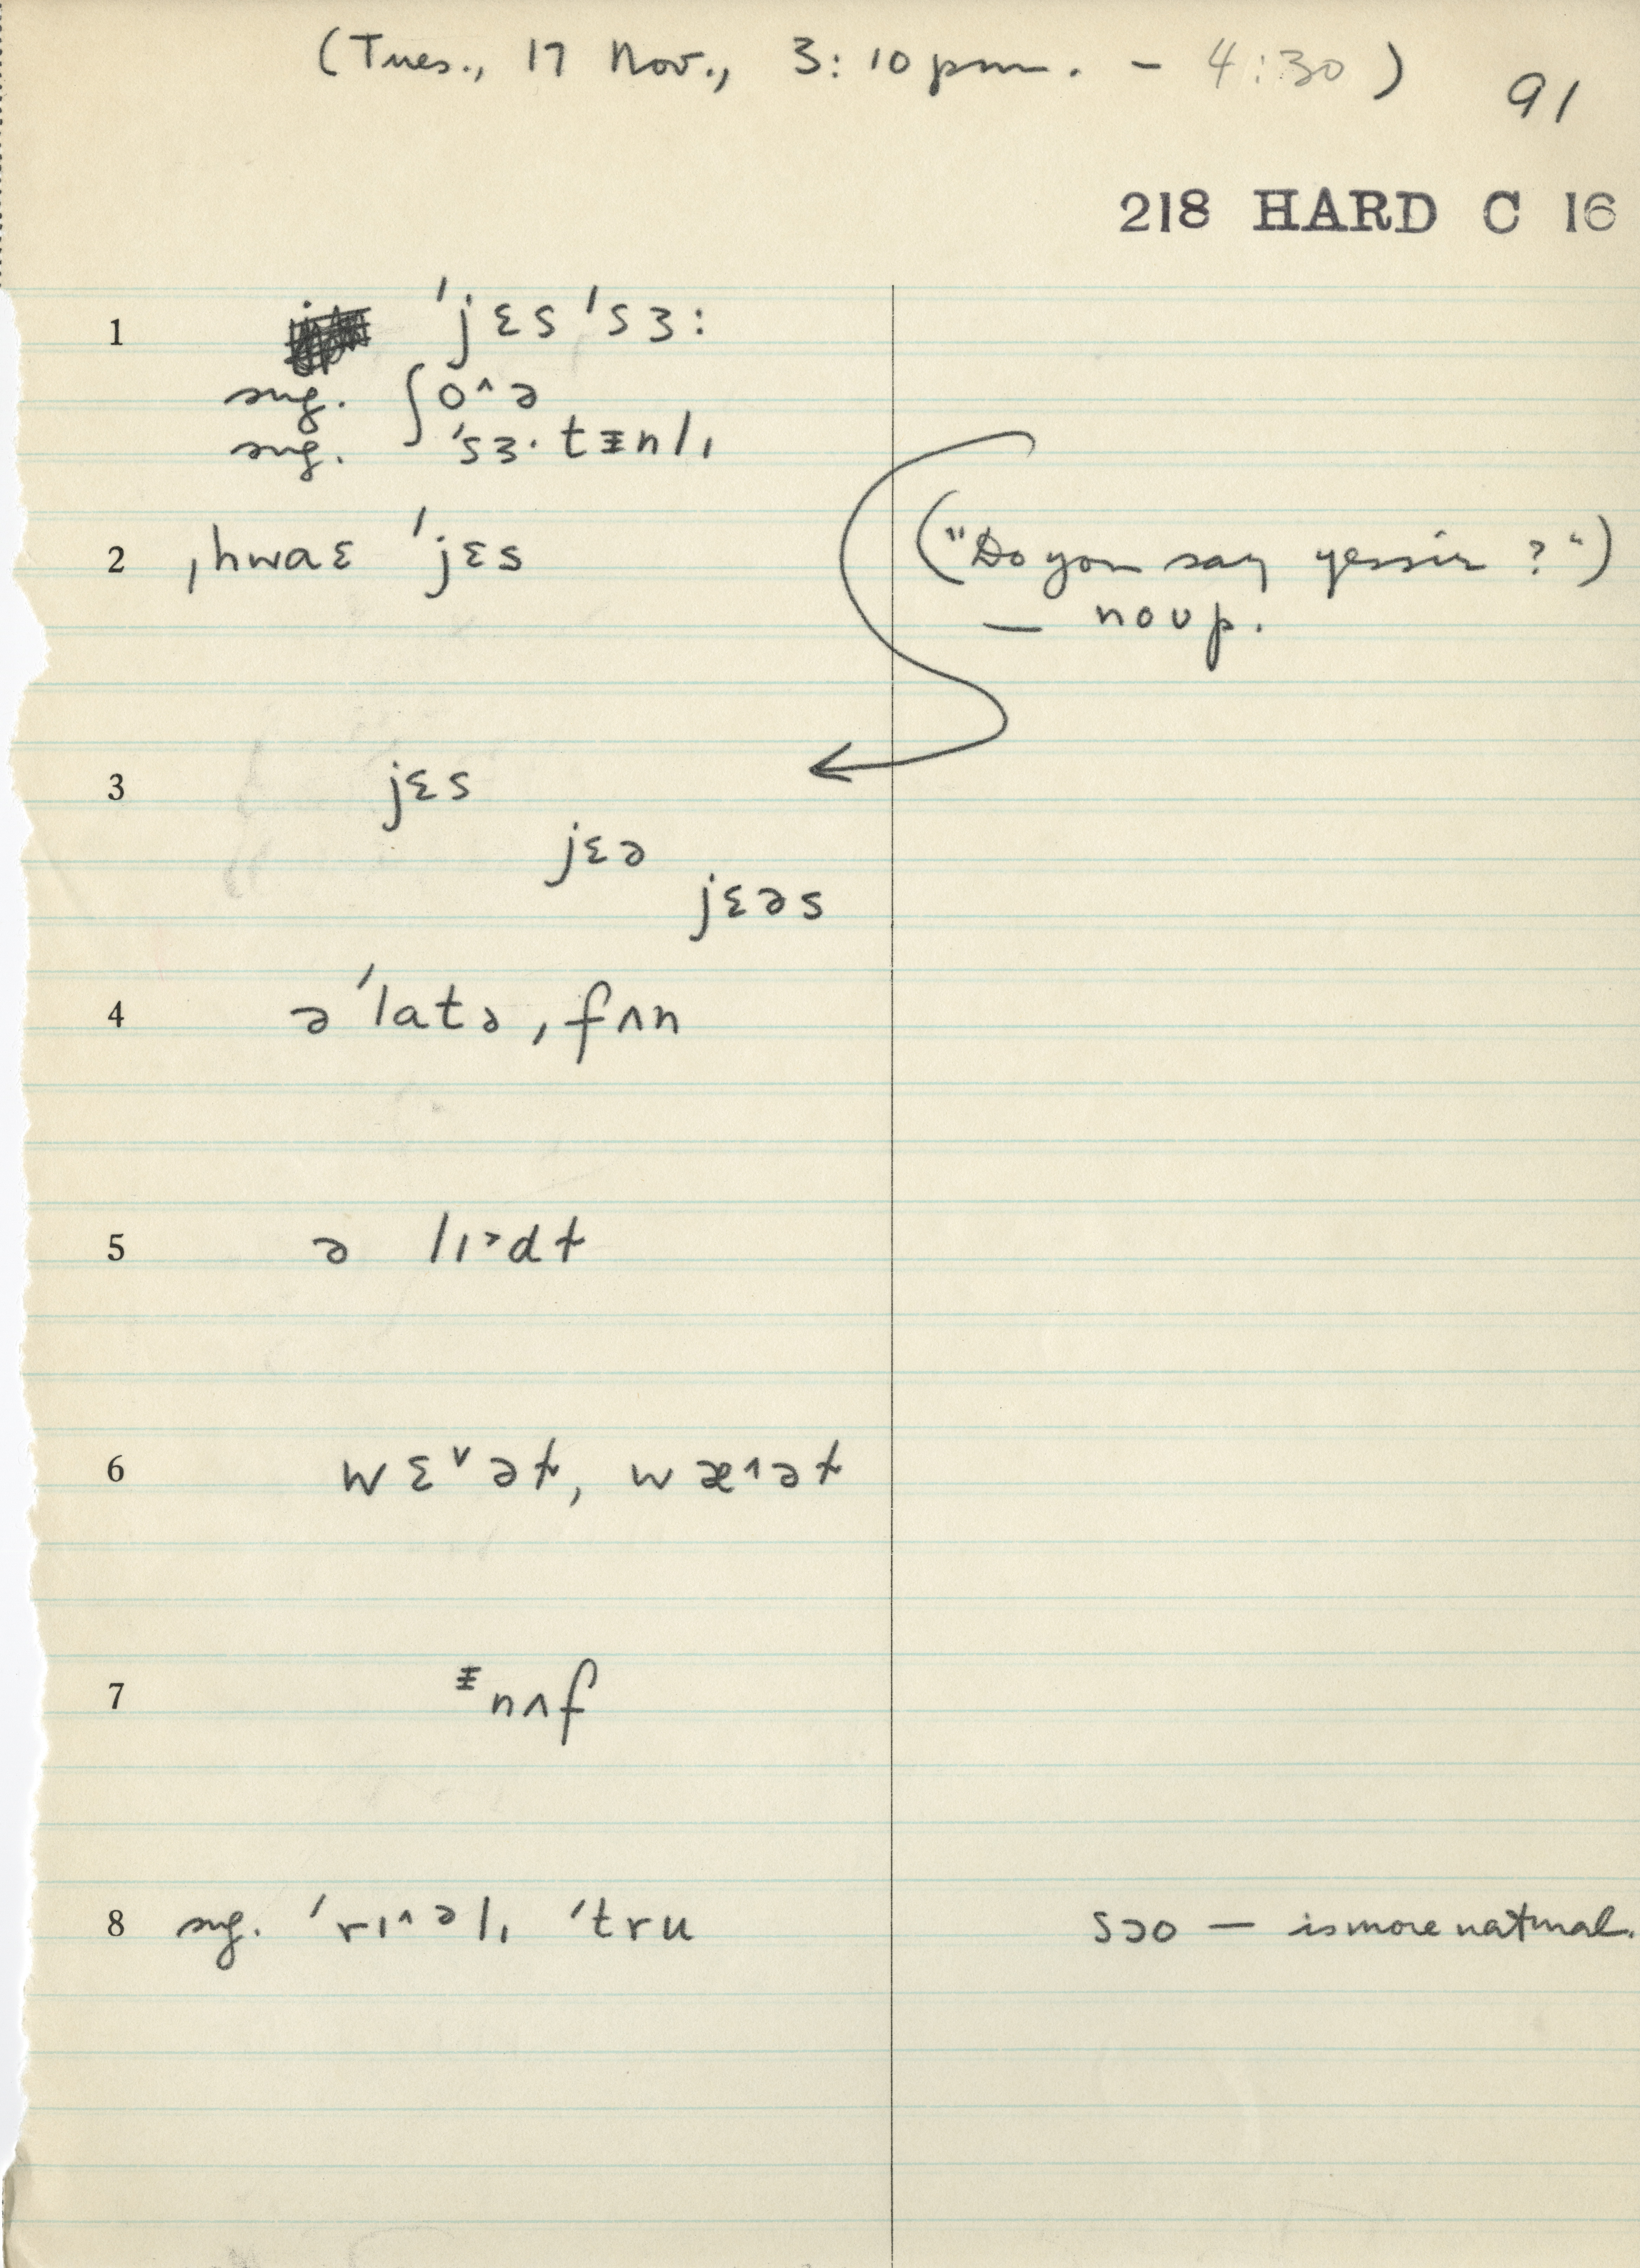 (Tues., 17 Nov., 3:10 pm. – 4:30)
91
218 HARD C 16
1 ˈjɛs ˈsɜ:
sug. ʃo^ə
sug. ˈsɜ·tᵻnlɪ
2 ˌhwaɛ ˈjɛs
("Do you say yessir?")
— noup.
3 jɛs
jɛə
jɛəs
4 əˈlatəˌfʌn
5 ə lɪ˃dɫ
6 wɛ˅əɫ, wæ˄əɫ
7 ᵻnʌf
8 sug. ˈrɪ^əlɪ ˈtru
sɔo — is more natural.